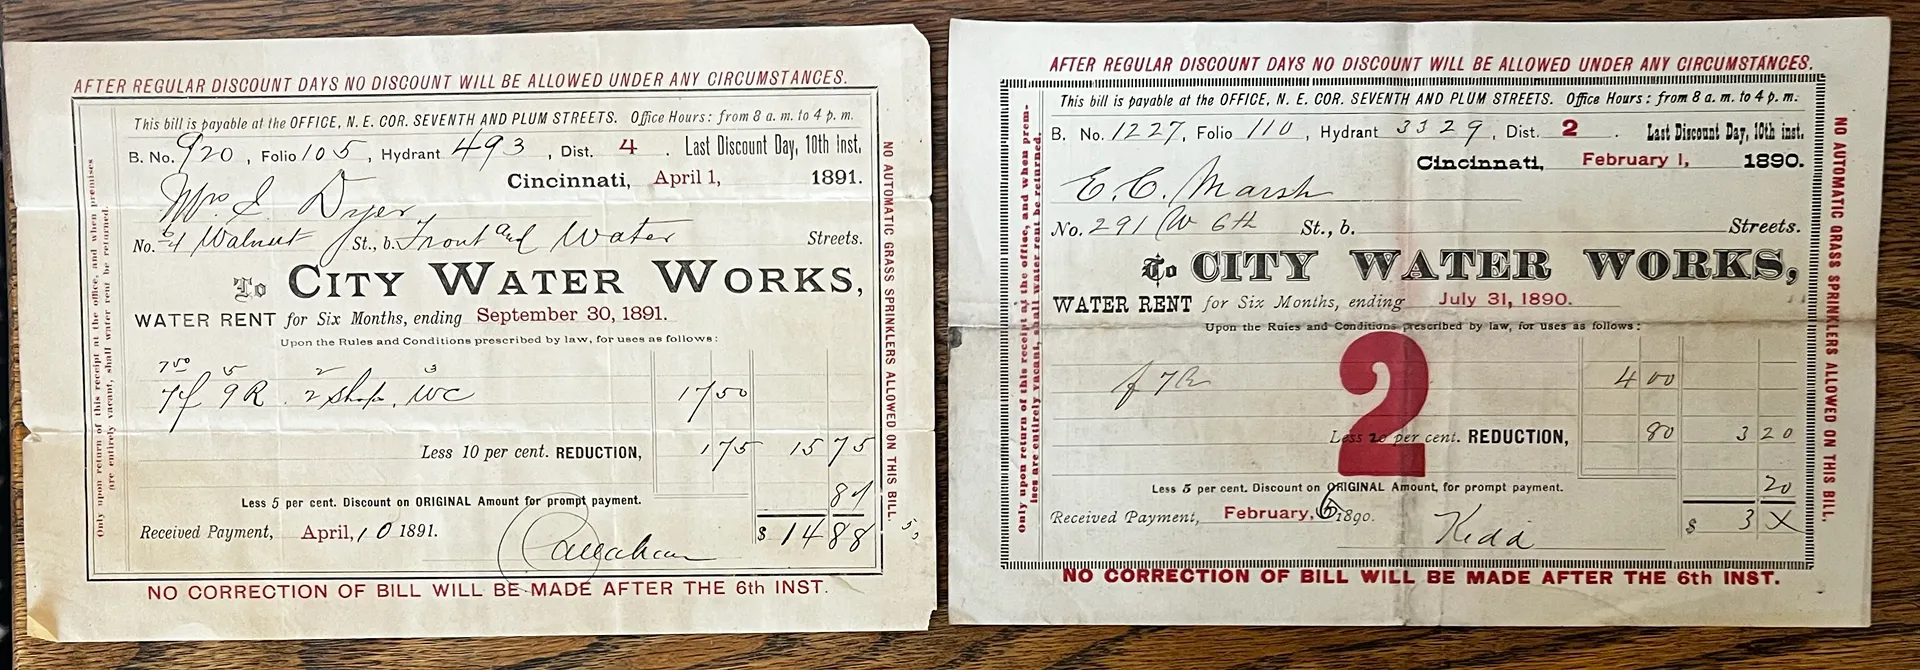 AFTER REGULAR DISCOUNT DAYS NO DISCOUNT WILL BE ALLOWED UNDER ANY CIRCUMSTANCES.
This bill is payable at the OFFICE, N. E. COR. SEVENTH AND PLUM STREETS. Office Hours: from 8 a. m. to 4 p. m.
B. No. 920, Folio 105, Hydrant 493, Dist. 4. Last Discount Day, 10th Inst.
Cincinnati, April 1, 1891.
Mrs. I. Dyer
No. 4 Walnut St., b. Front and Water Streets.
To CITY WATER WORKS,
WATER RENT for Six Months, ending September 30, 1891.
Upon the Rules and Conditions prescribed by law, for uses as follows:
7 50 5 2 3
7f 9R. 2 Shops, WC 17 50
Less 10 per cent. REDUCTION, 1 75 15 75
Less 5 per cent. Discount on ORIGINAL Amount for prompt payment. 87
Received Payment, April, 10 1891. Callahan $ 14 88
NO CORRECTION OF BILL WILL BE MADE AFTER THE 6th INST.
Only upon return of this receipt at the office, and when premises
are entirely vacant, shall water rent be returned.
NO AUTOMATIC GRASS SPRINKLERS ALLOWED ON THIS BILL.
AFTER REGULAR DISCOUNT DAYS NO DISCOUNT WILL BE ALLOWED UNDER ANY CIRCUMSTANCES.
This bill is payable at the OFFICE, N. E. COR. SEVENTH AND PLUM STREETS. Office Hours: from 8 a. m. to 4 p. m.
B. No. 1227, Folio 110, Hydrant 3329, Dist. 2. Last Discount Day, 10th inst.
Cincinnati, February 1, 1890.
E. C. Marsh
No. 291 W 6th St., b. Streets.
To CITY WATER WORKS,
WATER RENT for Six Months, ending July 31, 1890.
Upon the Rules and Conditions prescribed by law, for uses as follows:
2
f 7R 4 00
Less 20 per cent. REDUCTION, 80 3 20
Less 5 per cent. Discount on ORIGINAL Amount, for prompt payment. 20
Received Payment, February, 6 1890. Kidd $ 3 X
NO CORRECTION OF BILL WILL BE MADE AFTER THE 6th INST.
Only upon return of this receipt at the office, and when prem-
ises are entirely vacant, shall water rent be returned.
NO AUTOMATIC GRASS SPRINKLERS ALLOWED ON THIS BILL.